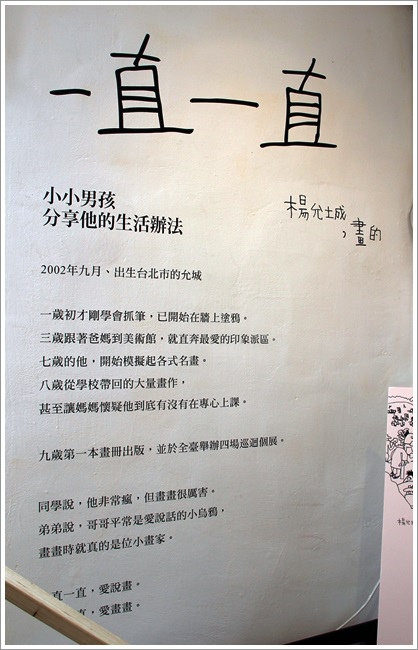 一直一直
小小男孩
分享他的生活辦法
楊允城
,畫的
2002年九月、出生台北市的允城
一歲初才剛學會抓筆,已開始在牆上塗鴉。
三歲跟著爸媽到美術館,就直奔最愛的印象派區。
七歲的他,開始模擬起各式名畫。
八歲從學校帶回的大量畫作,
甚至讓媽媽懷疑他到底有沒有在專心上課。
九歲第一本畫冊出版,並於全臺舉辦四場巡迴個展。
同學說,他非常瘋,但畫畫很厲害。
弟弟說,哥哥平常是愛說話的小烏鴉,
畫畫時就真的是位小畫家。
直一直,愛說畫。
直,愛畫畫。
楊允